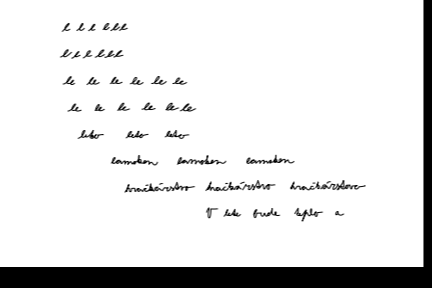 l l l l l l
l l l l l l
le le le le le le
le le le le le le
leto leto leto
kameňon kameňon kameňon
hračkárstvo hračkárstvo hračkárstvo
V lete bude teplo a